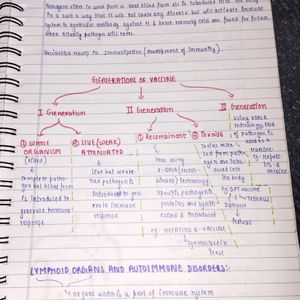 Pathogens often in weak form or heat killed form are introduced into the body
in such a way that it will not cause any disease but will activate immune
system to synthesize antibody against it & hence memory cells are formed for future,
when actually pathogen will enter.
Vaccination means to Immunisation (Development of Immunity)
GENERATION OF VACCINE
I Generation
II Generation
III Generation
① WHOLE ORGANISM
(Killed)
complete patho
gen but killed form
is introduced to
generate immune
response
② LIVE (WEAK)
ATTENUATED
live but weake
ned pathogen is
introduced to gen
erate immune
response
① Recombinant
Here using
r-DNA (recom-
binant) technology
specific pathogenic
proteins are synth
esized & introduced
eg. HEPATITIS B-VACCINE
synthesized in
Yeast
② Toxoids
Toxins relea-
sed from patho
gen are intro
duced into
body
eg. DPT vaccine
Tetanus
Using rDNA
technology DNA
of pathogen is
used as
vaccine
LYMPHOID ORGANS AND AUTOIMMUNE DISORDERS:-
Organs which is a part of immune system